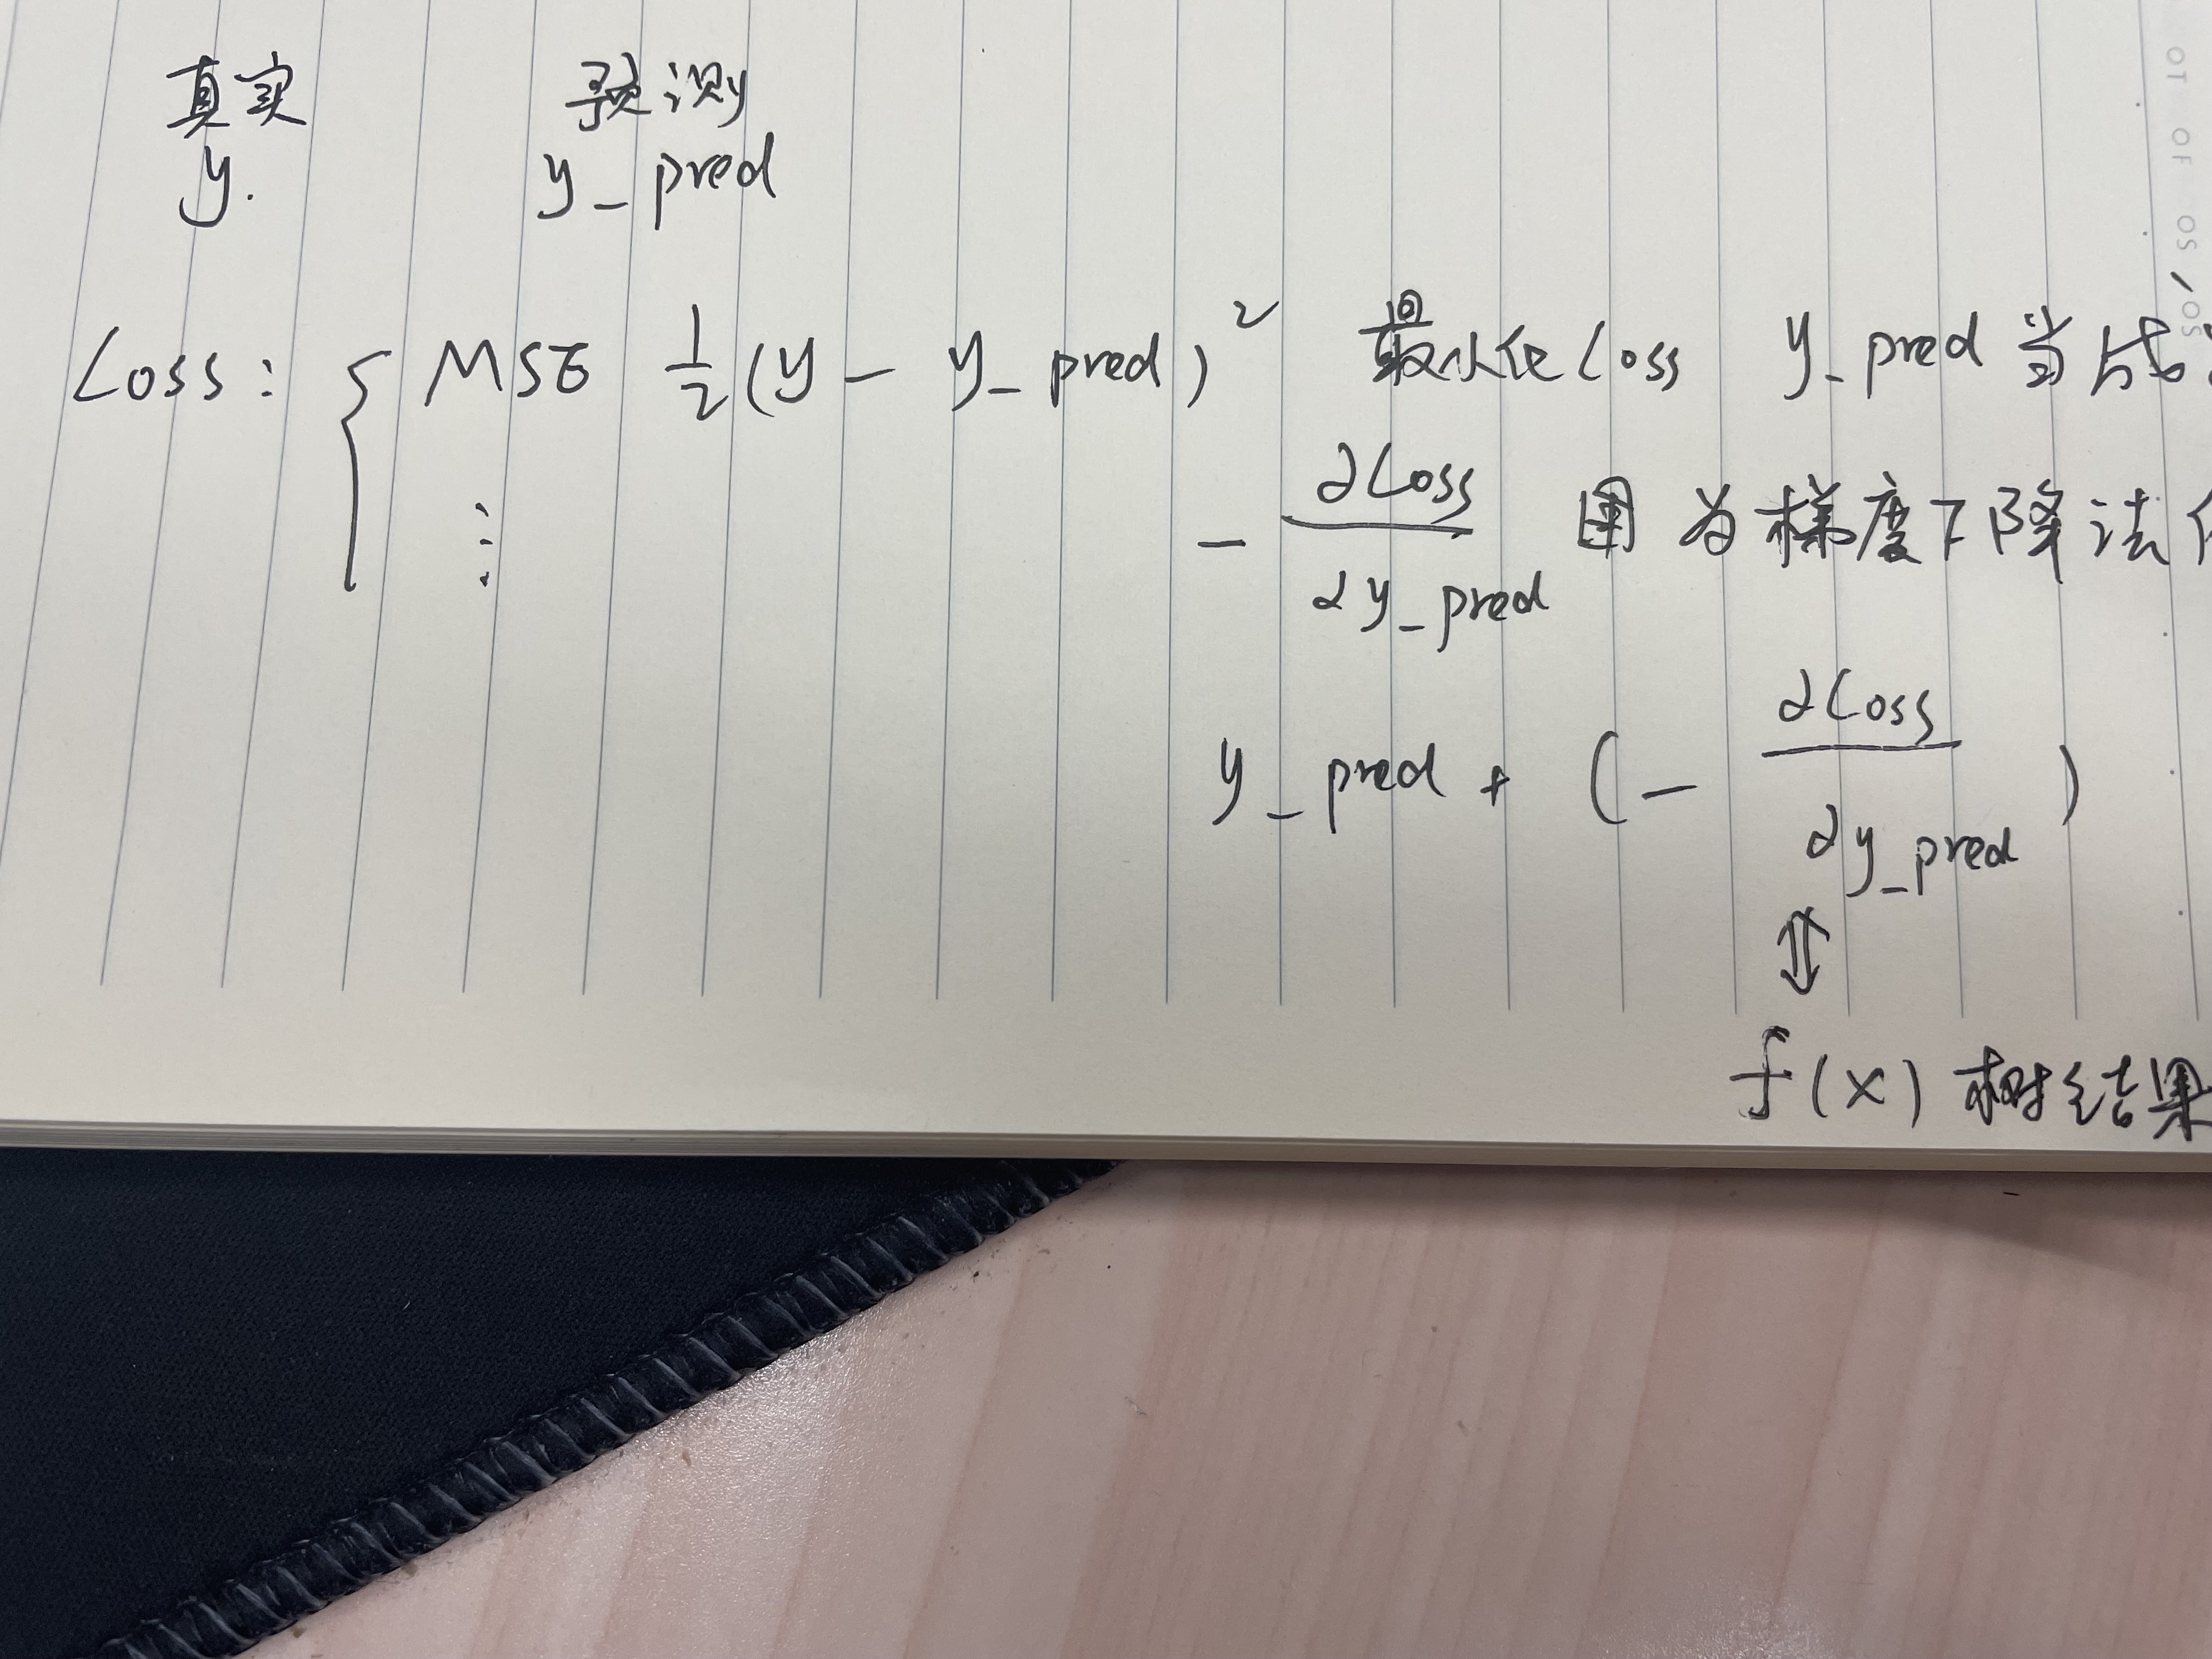 真实 预测
y. y_pred
Loss: { MSE 1/2 (y - y_pred)² 最小化Loss y_pred当成
⋮
- ∂Loss/∂y_pred 因为梯度下降法
y_pred + (- ∂Loss/∂y_pred)
⇕
f(x) 树结果
OT OF OS/OS